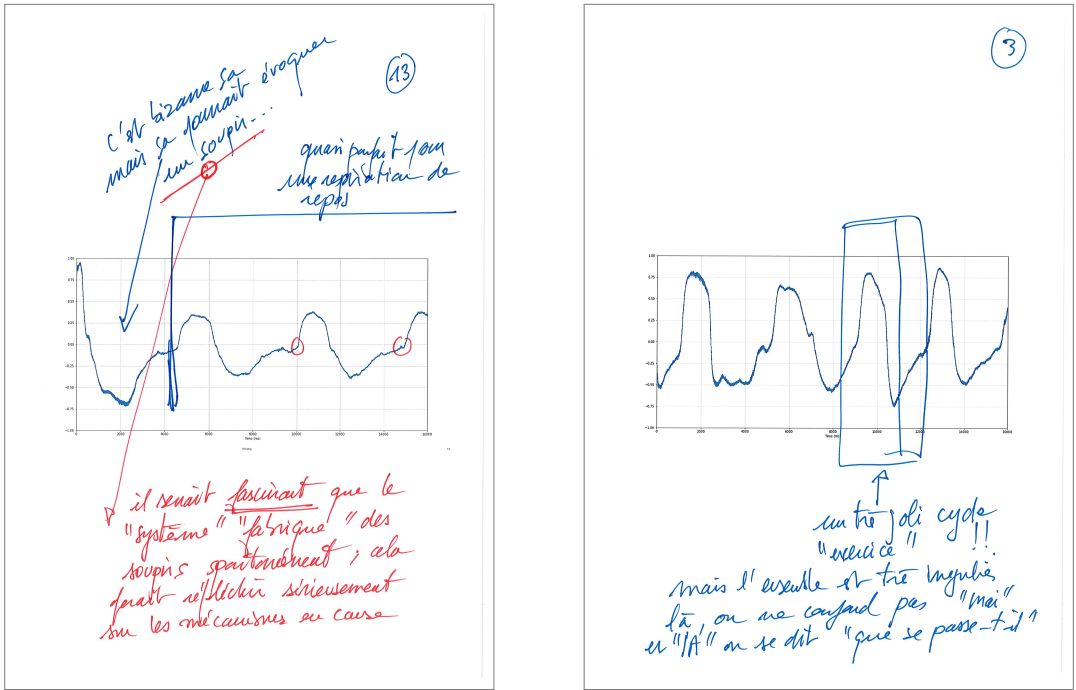 13
c'est bizarre ça
mais ça pourrait évoquer
un soupir...
quasi parfait pour
une respiration de
repos
1.00
0.75
0.50
0.25
0.00
−0.25
−0.50
−0.75
−1.00
0 2000 4000 6000 8000 10000 12000 14000 16000
Time (ms)
il serait fascinant que le
"système" "fabrique" des
soupirs spontanément ; cela
ferait réfléchir sérieusement
sur les mécanismes en cause
3
1.00
0.75
0.50
0.25
0.00
−0.25
−0.50
−0.75
−1.00
0 2000 4000 6000 8000 10000 12000 14000 16000
Time (ms)
un très joli cycle
"exercice" !!
mais l'ensemble est très irrégulier
là, on ne confond pas "moi"
et "IA" on se dit "que se passe-t-il"